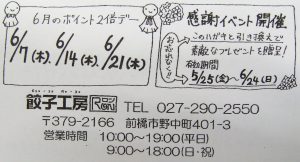 6月のポイント2倍デー
6/7(木). 6/14(木). 6/21(木)
感謝イベント開催
お忘れなく!
このハガキと引き換えで
素敵なプレゼントを贈呈!
有効期間
5/25(金)～6/24(日)
餃子工房 RON
TEL 027-290-2550
〒379-2166 前橋市野中町401-3
営業時間 10:00～19:00(平日)
9:00～18:00(日・祝)